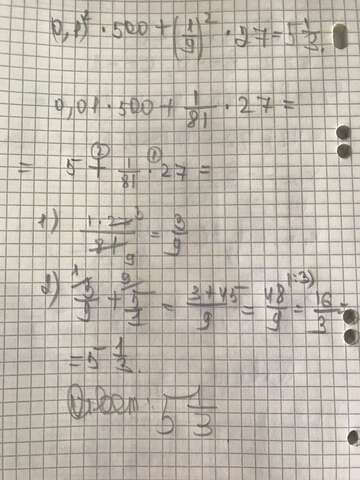 0,1² · 500 + (1/9)² · 27 = 5 1/3.
0,01 · 500 + 1/81 · 27 =
= 5 + 1/81 · 27 =
1) 1·27/81 = 3/9
2) 3/9 + 5/1 = 3+45/9 = 48/9 (:3) = 16/3 =
= 5 1/3.
Ответ: 5 1/3